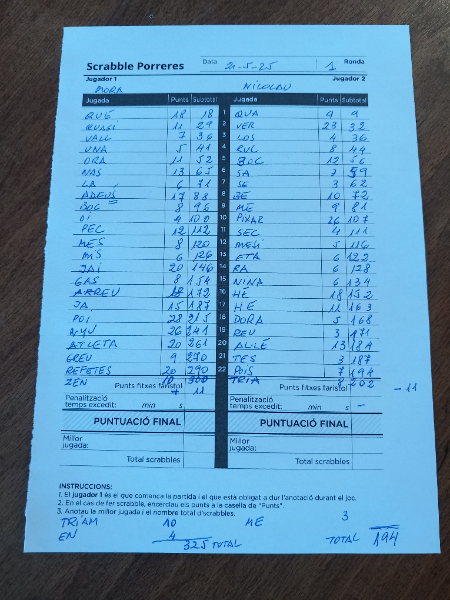 Scrabble Porreres Data 21-5-25 1 Ronda
Jugador 1 Jugador 2
MORA NICOLAU
Jugada Punts Subtotal Jugada Punts Subtotal
QUÈ 18 18 1 QUA 9 9
QUASI 11 29 2 VER 23 32
VALL 7 36 3 LOS 4 36
UNA 5 41 4 RUC 8 44
ORA 11 52 5 JOC 12 56
NAS 13 65 6 SA 3 59
LA 6 71 7 SE 3 62
ADEUS 17 88 8 BE 10 72
BOC 8 96 9 ME 9 81
OI 4 100 10 PIXAR 26 107
PEC 12 112 11 SEC 4 111
MES 8 120 12 5 116
MIS 6 126 13 ETA 6 122
JAI 20 146 14 RA 6 128
GAS 8 154 15 NINA 6 134
ARREU 18 172 16 HE 18 152
JA 15 187 17 HE 11 163
POU 28 215 18 DORA 5 168
NYU 26 241 19 REU 3 171
ATLETA 20 261 20 ALLÈ 13 184
GREU 9 270 21 TES 3 187
REFETES 20 290 22 POIS 7 194
ZEN 10 300 TRIA 8 202
Punts fitxes faristol 7 11 Punts fitxes faristol - 11
Penalització temps excedit: min s Penalització temps excedit: min s -
PUNTUACIÓ FINAL PUNTUACIÓ FINAL
Millor jugada: Millor jugada:
Total scrabbles Total scrabbles
INSTRUCCIONS:
1. El jugador 1 és el que comença la partida i el que està obligat a dur l'anotació durant el joc.
2. En el cas de fer scrabble, encercleu els punts a la casella de "Punts".
3. Anotau la millor jugada i el nombre total d'scrabbles.
TRIAM 10 ME 3
EN 4
325 TOTAL TOTAL 194